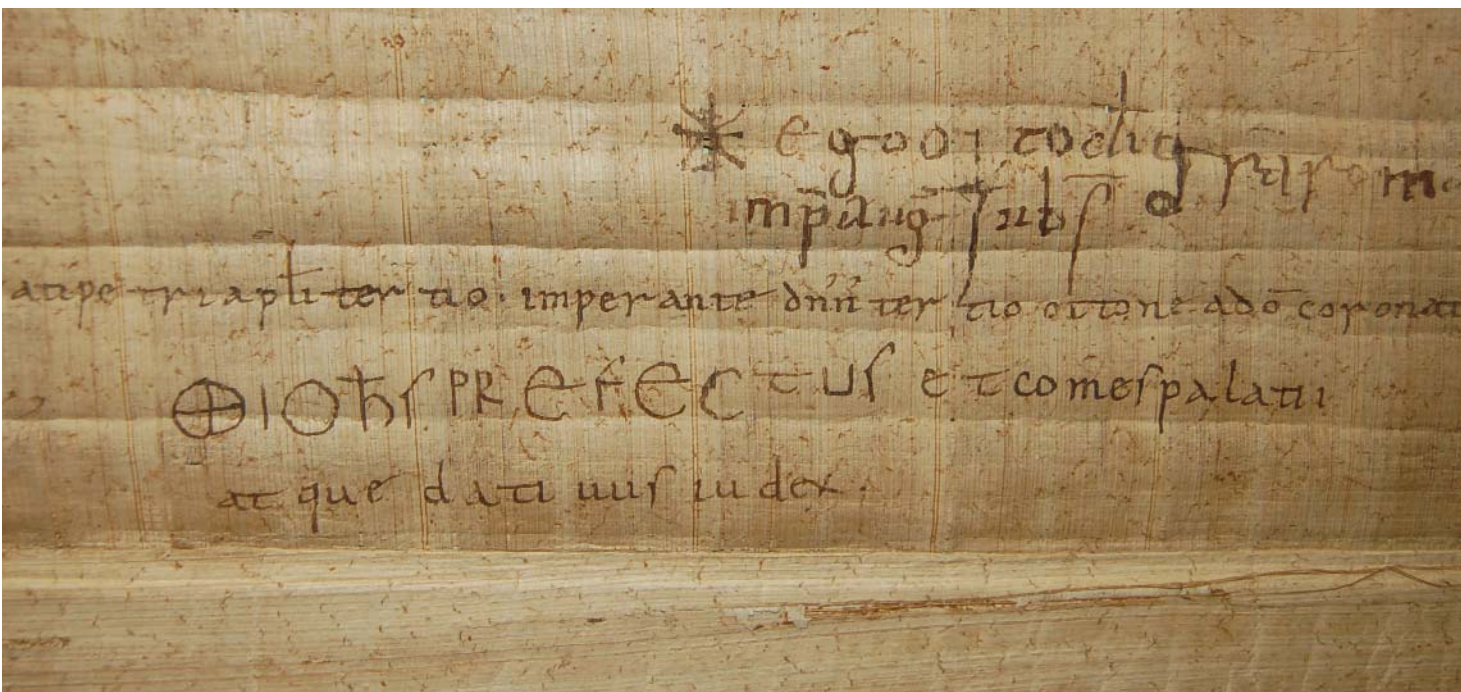 ego otto di gra rom
imp aug subs
petri apli tertio · imperante dnn tertio ottone a do coronat
IOhS PREFECTUS et comes palatii
atque dativus iudex ·